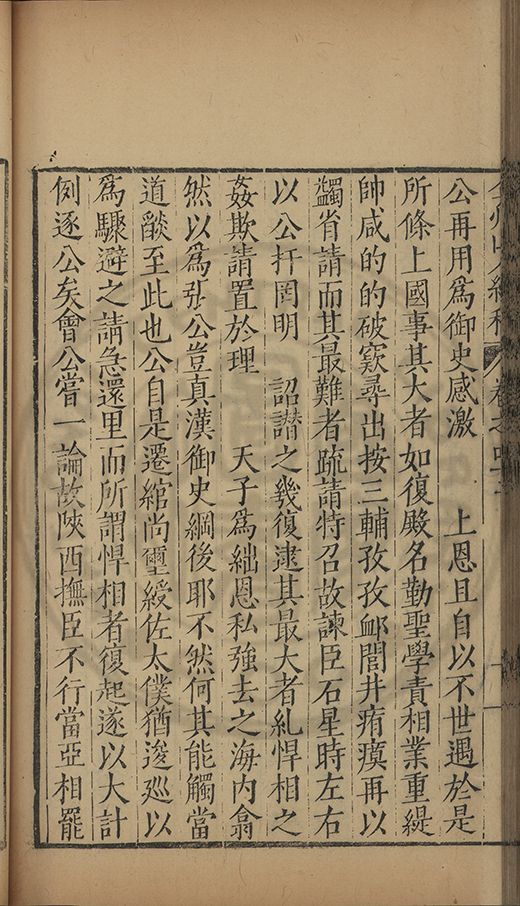 山人續稿 卷之
公再用爲御史感激　上恩且自以不世遇於是
所條上國事其大者如復殿名勤聖學責相業重緹
帥咸的的破窾尋出按三輔孜孜䘏閭井痏瘼再以
蠲省請而其最難者疏請特召故諫臣石星時左右
以公扞罔明　詔譖之幾復逮其最大者糺悍相之
姦欺請置於理　天子爲絀恩私強去之海內翕
然以爲張公豈真漢御史綱後耶不然何其能觸當
道燄至此也公自是遷綰尚璽綬佐太僕猶逡巡以
爲驟避之請急還里而所謂悍相者復起遂以大計
例逐公矣會公嘗一論故陝西撫臣不行當亞相罷